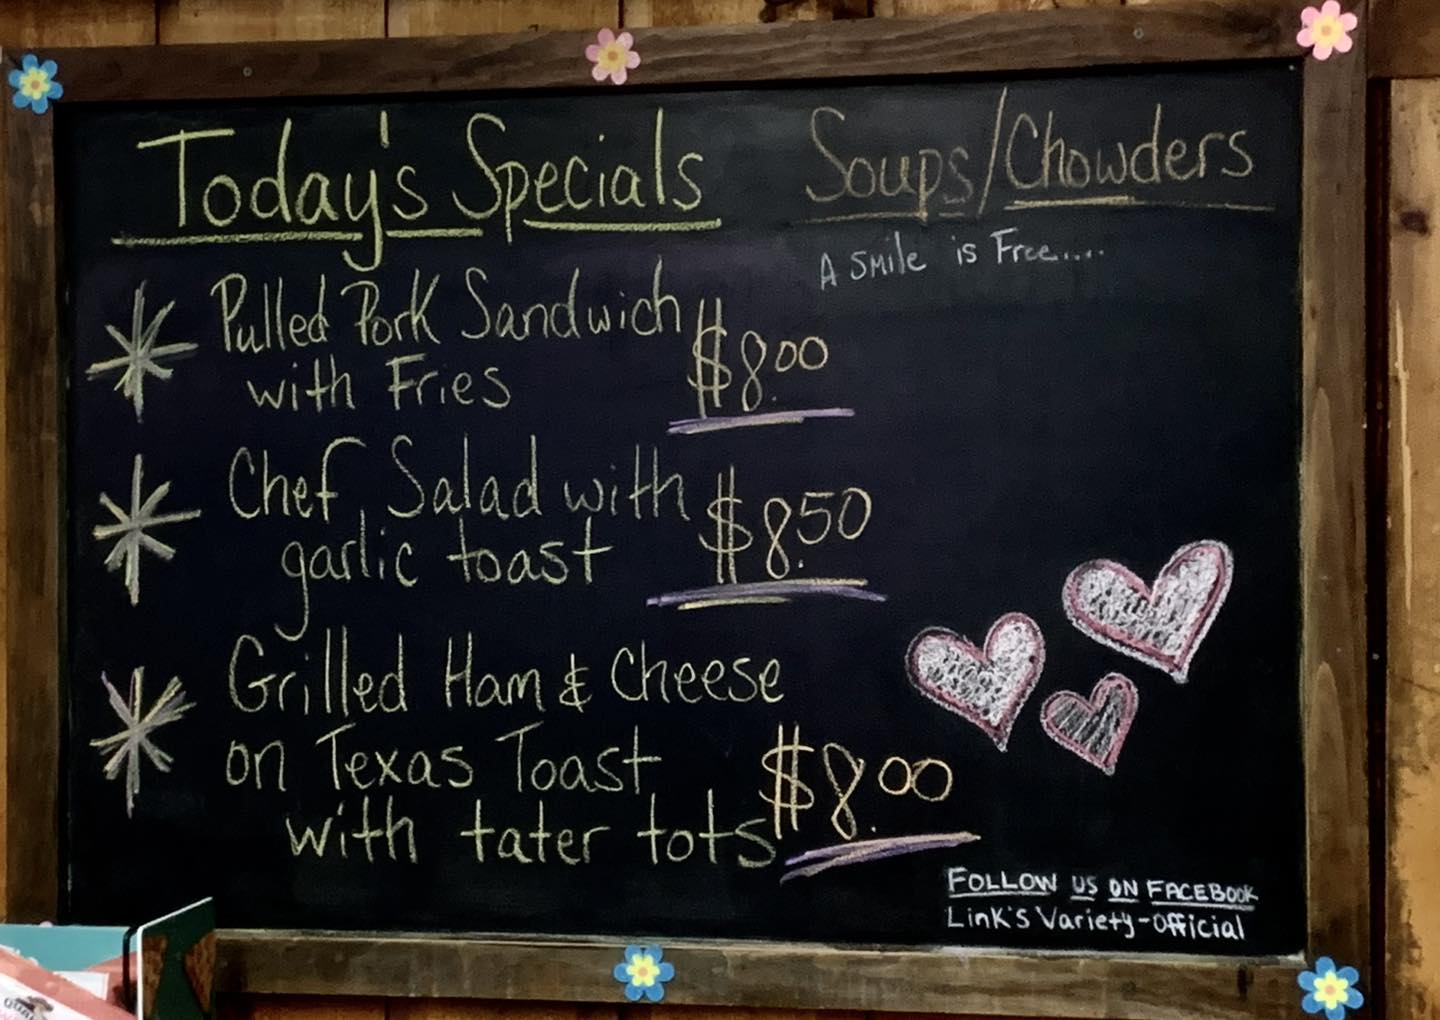 Today's Specials
Pulled Pork Sandwich
with Fries
$8.00
Chef Salad with
garlic toast
$8.50
Grilled Ham & Cheese
on Texas Toast
with tater tots
$8.00
Soups/Chowders
A SMile is Free....
FOLLOW US ON FACEBOOK
Link's Variety-Official